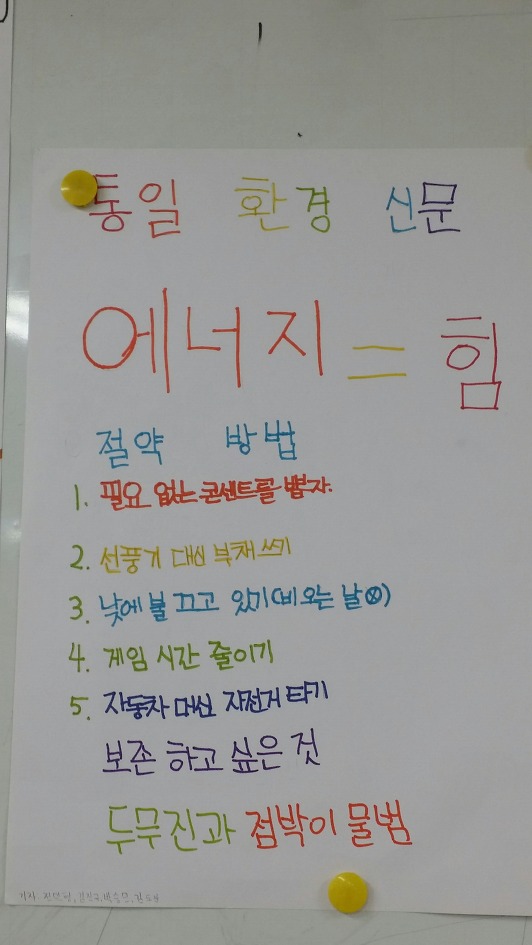 통일 환경 신문
에너지 = 힘
절약 방법
1. 필요 없는 콘센트를 뽑자.
2. 선풍기 대신 부채 쓰기
3. 낮에 불 끄고 있기(비 오는 날ⓧ)
4. 게임 시간 줄이기
5. 자동차 대신 자전거 타기
보존 하고 싶은 것
두무진과 점박이 물범
기자